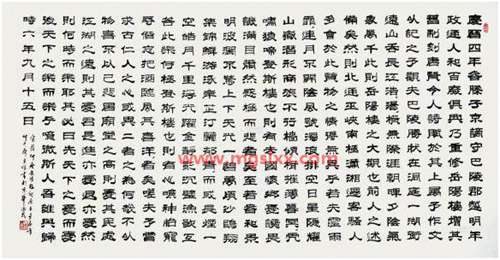 慶曆四年春滕子京謫守巴陵郡越明年
政通人和百廢俱興乃重修岳陽樓增其
舊制刻唐賢今人詩賦於其上屬予作文
以記之予觀夫巴陵勝狀在洞庭一湖銜
遠山吞長江浩浩湯湯橫無際涯朝暉夕陰氣
象萬千此則岳陽樓之大觀也前人之述
備矣然則北通巫峽南極瀟湘遷客騷人
多會於此覽物之情得無異乎若夫霪雨
霏霏連月不開陰風怒號濁浪排空日星隱耀
山嶽潛形商旅不行檣傾楫摧薄暮冥冥虎
嘯猿啼登斯樓也則有去國懷鄉憂讒畏
譏滿目蕭然感極而悲者矣至若春和景
明波瀾不驚上下天光一碧萬頃沙鷗翔
集錦鱗游泳岸芷汀蘭郁郁青青而或長煙一
空皓月千里浮光躍金靜影沉璧漁歌互
答此樂何極登斯樓也則有心曠神怡寵
辱偕忘把酒臨風其喜洋洋者矣嗟夫予嘗
求古仁人之心或異二者之為何哉不以
物喜不以己悲居廟堂之高則憂其民處
江湖之遠則憂其君是進亦憂退亦憂然
則何時而樂耶其必曰先天下之憂而憂
後天下之樂而樂乎噫微斯人吾誰與歸
時六年九月十五日
www.mgslxx.com